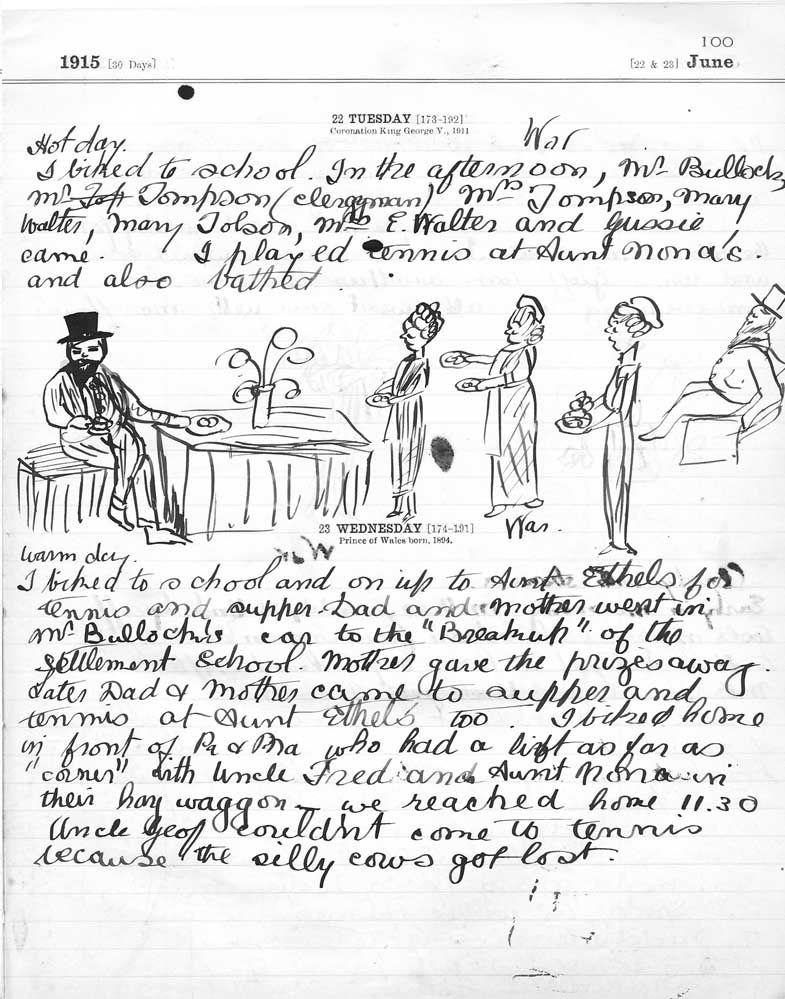 100
1915 [30 Days] [22 & 23] June
22 TUESDAY [173-192]
Coronation King George V., 1911
Hot day. War
I biked to school. In the afternoon, Mr Bullock,
Mr Tompson (clergyman) Mrs Tompson, Mary
Walter, Mary Tolson, Mrs E. Walter and Gussie
came. I played tennis at Aunt Nona's.
and also bathed.
23 WEDNESDAY [174-191]
Prince of Wales born, 1894.
War.
warm day. War
I biked to school and on up to Aunt Ethels for
tennis and supper. Dad and mother went in
Mr Bullock's car to the "Breakup" of the
Settlement School. Mother gave the prizes away.
Later Dad & Mother came to supper and
tennis at Aunt Ethels too. I biked home
in front of Pa & Ma who had a lift as far as
"corner" with Uncle Fred and Aunt Nona in
their hay waggon - we reached home 11.30
Uncle Geof couldn't come to tennis
because the silly cows got lost.